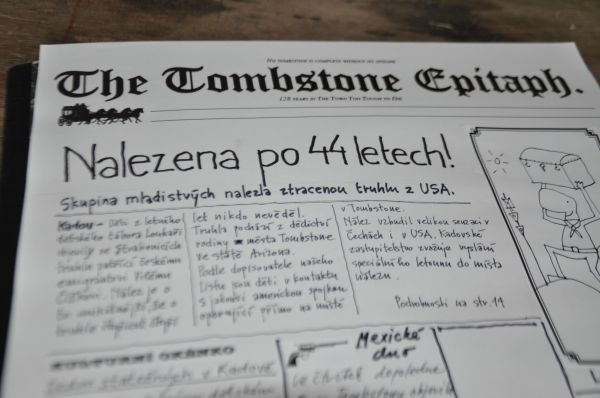 No tombstone is complete without its epitaph
The Tombstone Epitaph.
128 years in The Town Too Tough to Die
Nalezena po 44 letech!
Skupina mladistvých nalezla ztracenou truhlu z USA.
Kadov – Děti z letního
dětského tábora
ve Strakonicích
truhlu patřící českému
emigrantovi Vilému
Nález je o
to unikátnější, že o
truhle čtyřicet čtyři
let nikdo nevěděl.
Truhla pochází z dědictví
rodiny z města Tombstone
ve státě Arizona.
Podle dopisovatele našeho
listu jsou děti v kontaktu
s jakousi americkou spojkou
operující přímo na místě
v Tombstone.
Nález vzbudil velikou senzaci v
Čechách i v USA. Kadovské
zastupitelstvo zvažuje vyslání
speciálního letounu do místa
nálezu.
Podrobnosti na str. 14
KULTURNÍ OKÉNKO
v Kadově
Mexická
duo
Ve čtvrtek dopoledne